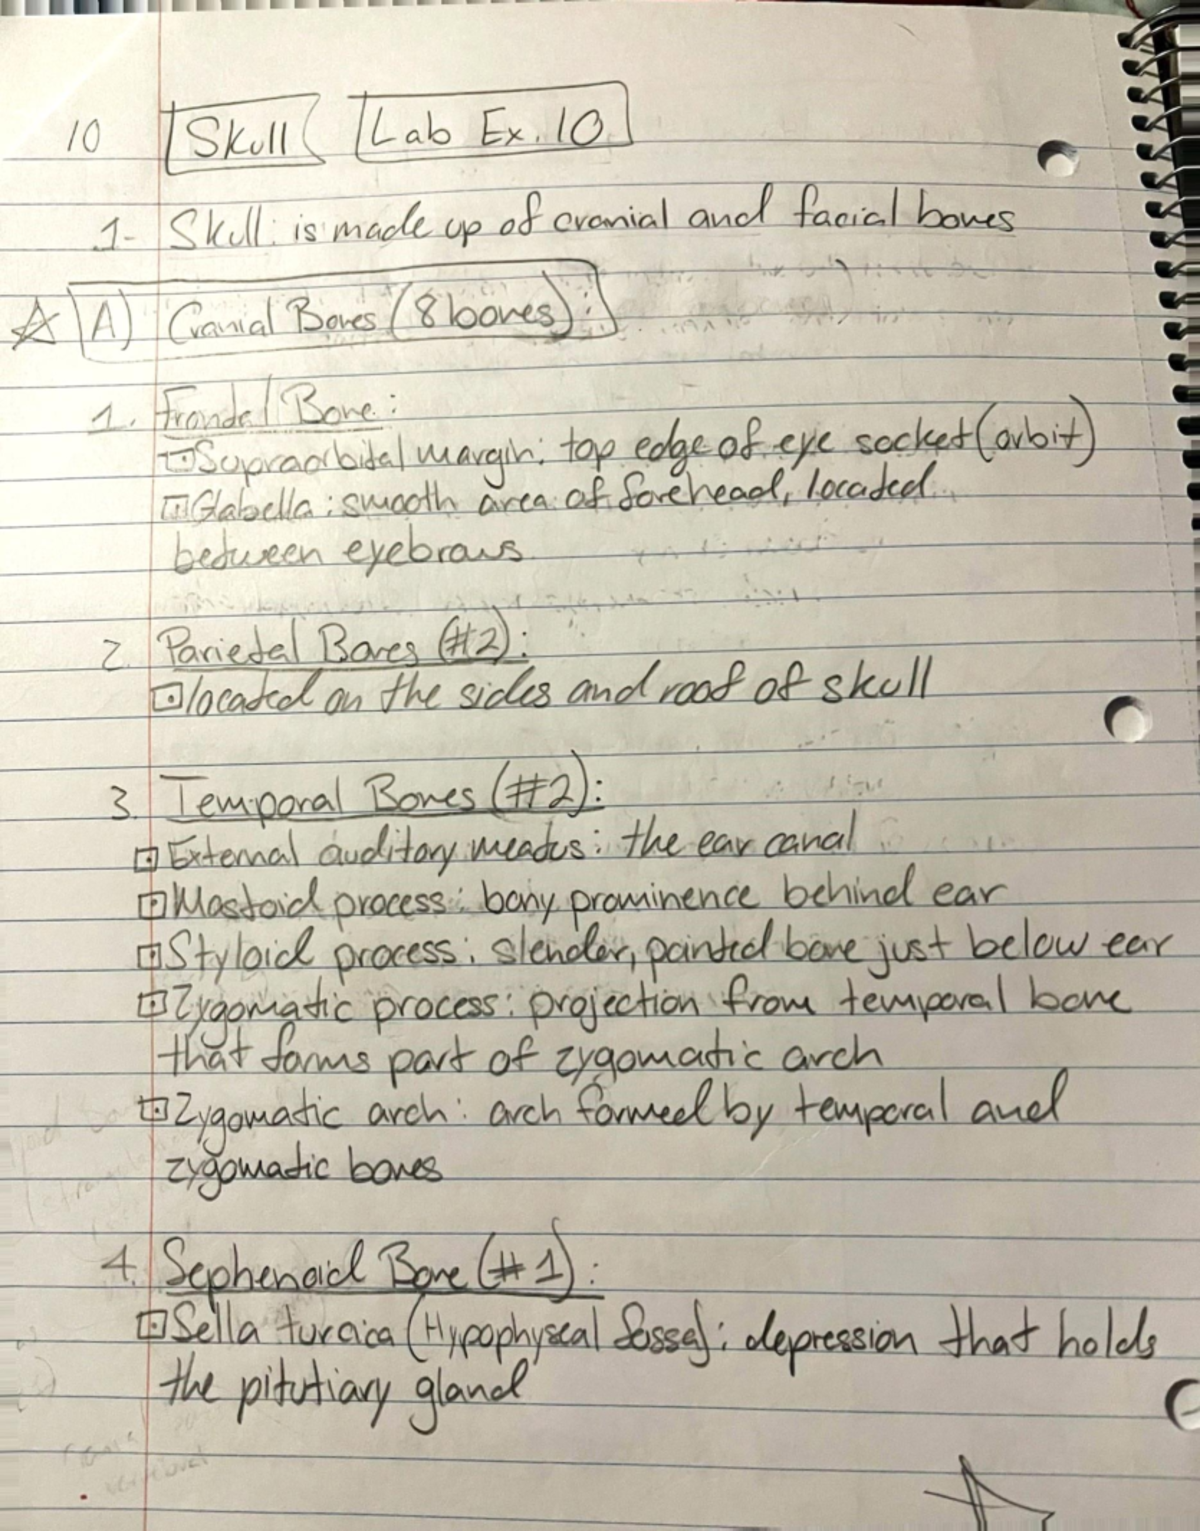 10 Skull Lab Ex. 10
1- Skull: is made up of cranial and facial bones
A) Cranial Bones (8 bones):
1. Frontal Bone:
Supraorbital margin: top edge of eye socket (orbit)
Glabella: smooth area of forehead, located
between eyebrows
2. Parietal Bones (#2):
located on the sides and roof of skull
3. Temporal Bones (#2):
External auditory meatus: the ear canal
Mastoid process: bony prominence behind ear
Styloid process: slender, pointed bone just below ear
Zygomatic process: projection from temporal bone
that forms part of zygomatic arch
Zygomatic arch: arch formed by temporal and
zygomatic bones
4. Sephenoid Bone (#1):
Sella turcica (Hypophyseal fossa): depression that holds
the pitutiary gland